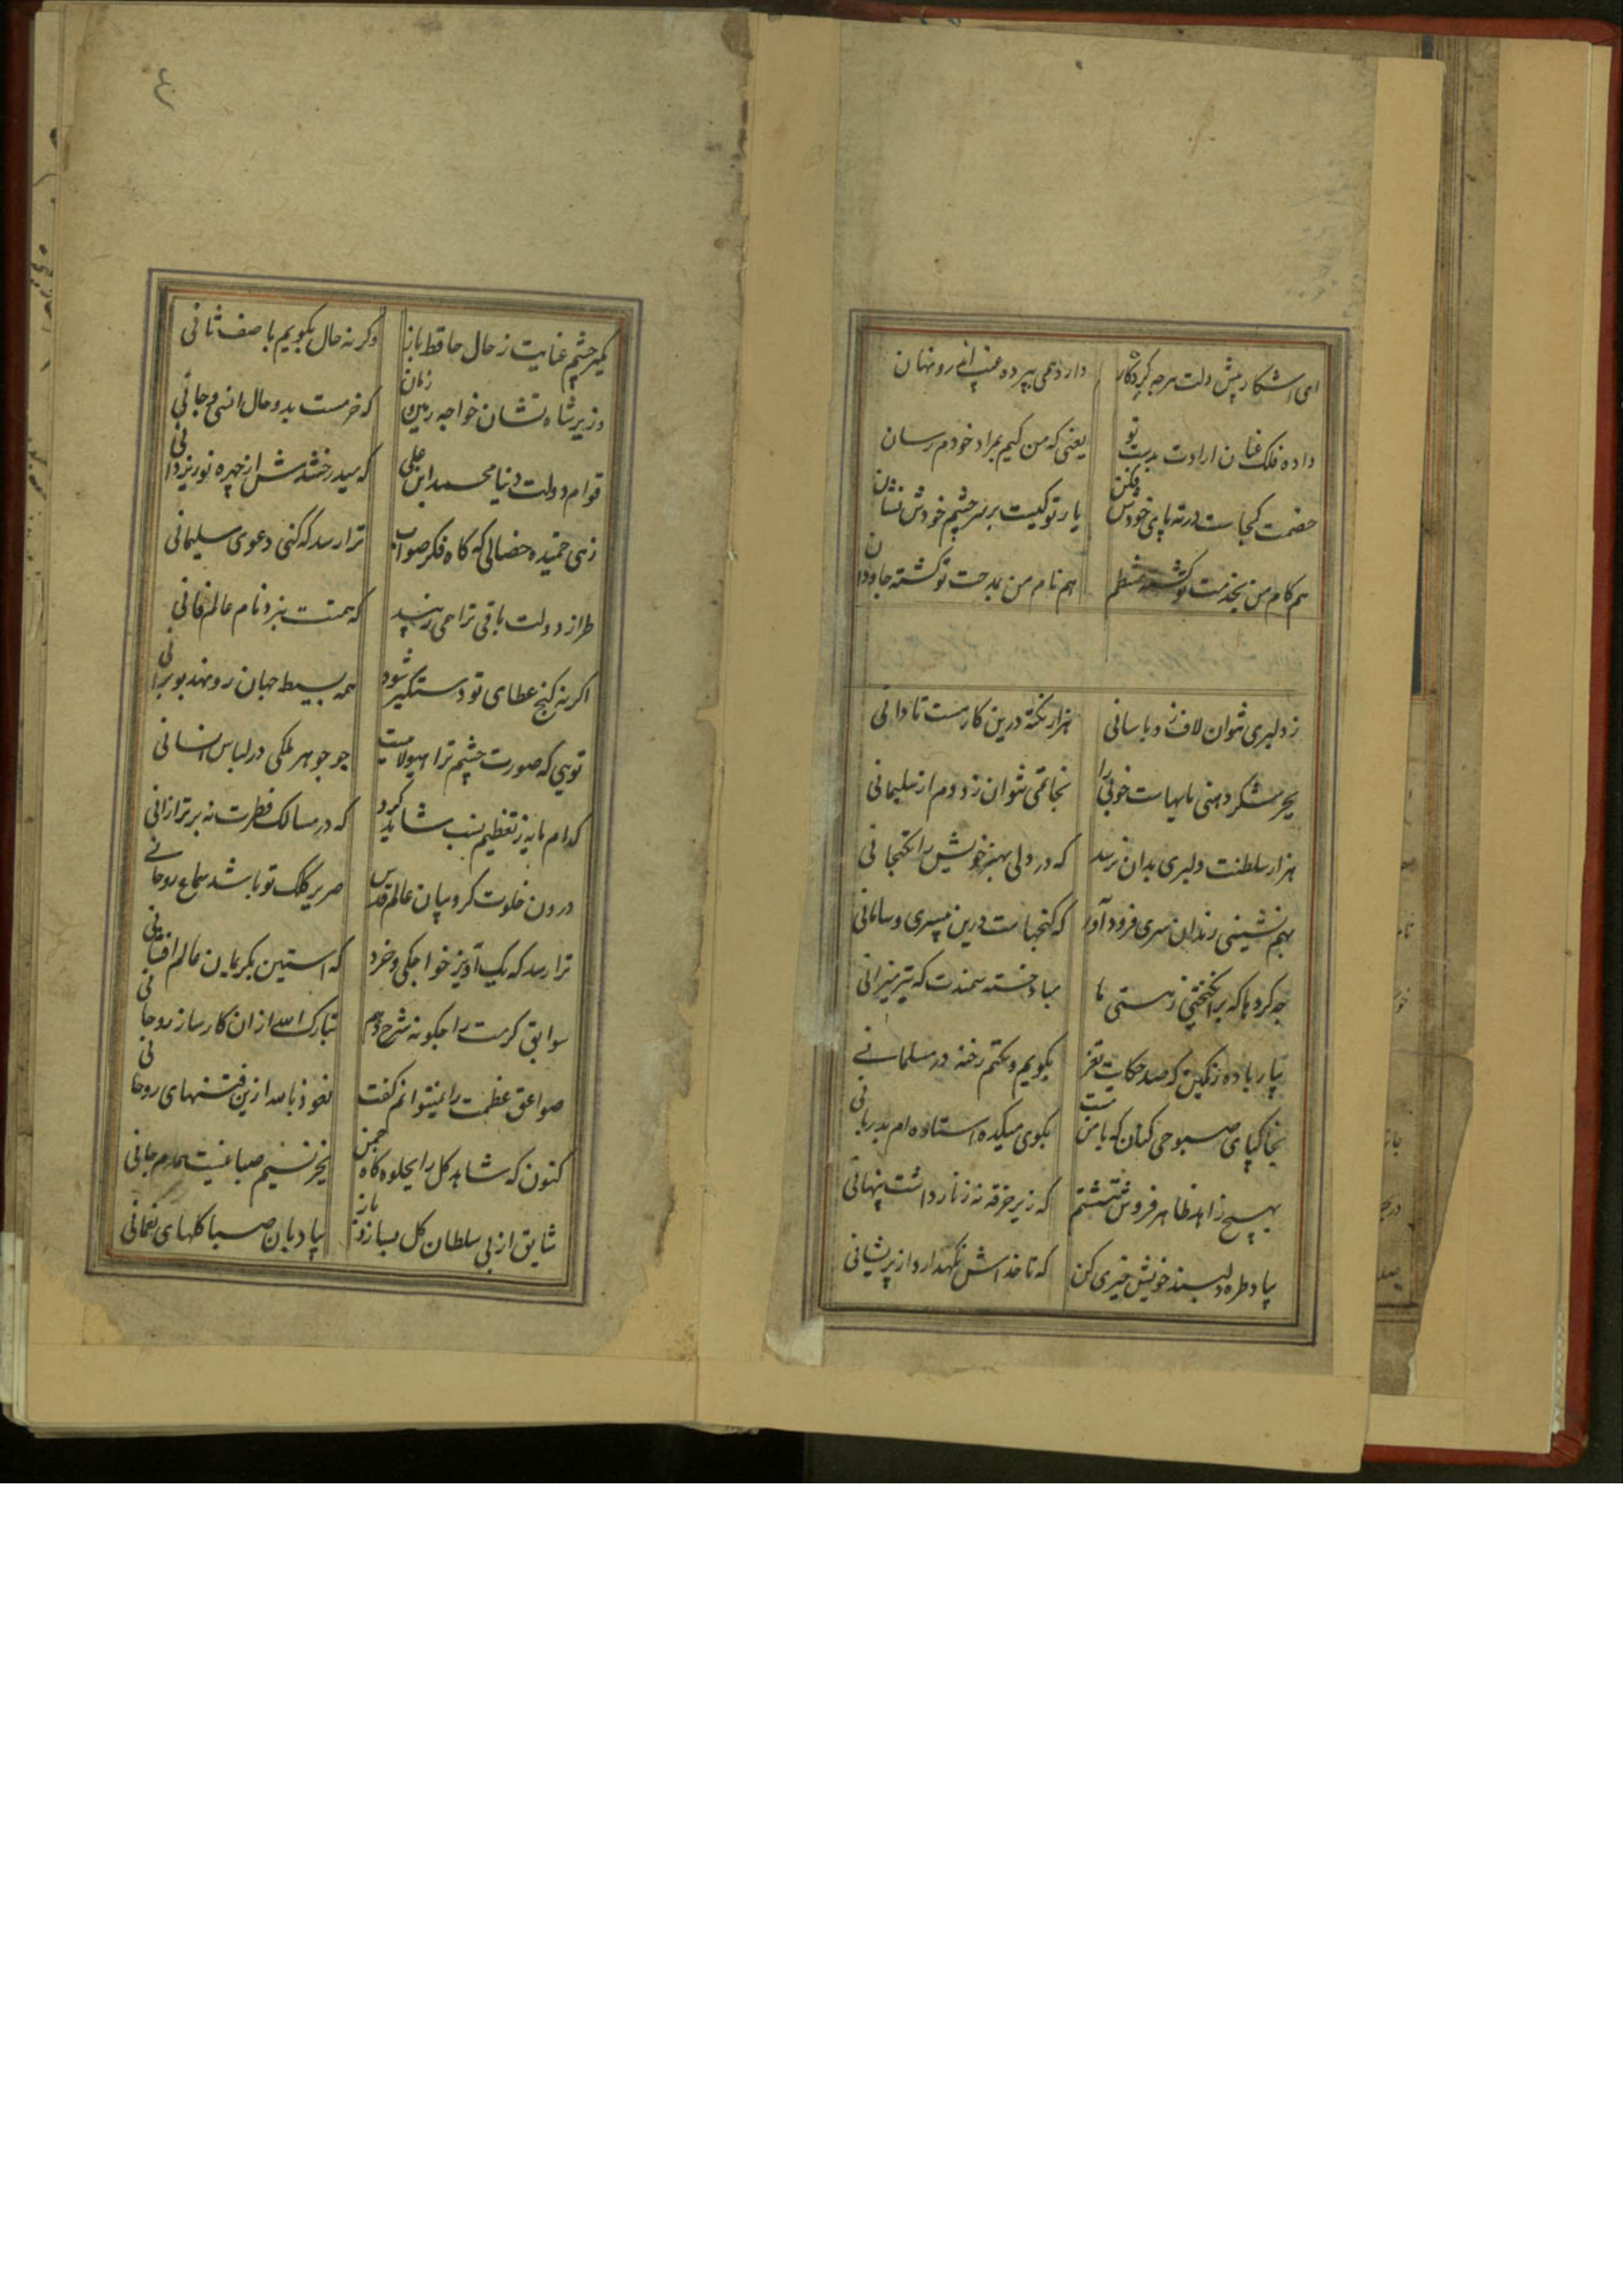 ای آشکار پیش دلت هرچه کردگار دارد همی بپرده غیب اندرو نهان
داده فلک عنان ارادت بدست تو یعنی که من کیم بمراد خودم رسان
خصمت کجاست در ته پای خودش فکن یار تو کیست بر سر چشم خودش نشان
هم کام من بخدمت تو کشته منتظم هم نام من بمدحت تو کشته جاودان
ز دلبری نتوان لاف زد باسانی هزار نکته درین کار هست تا دانی
بجز شکر دهنی مایهاست خوبی را بخاتمی نتوان زد دم از سلیمانی
هزار سلطنت دلبری بدان نرسد که در دلی بهنر خویش را بکنجانی
بهم نشینی رندان سری فرود آور که کنجهاست درین بیسری و سامانی
چه کردها که برانکیختی ز هستی ما مباد خسته سمندت که تیز میرانی
بیار باده رنکین که صد حکایت نغز بکویم و نکنم رخنه در مسلمانی
بخاک پای صبوحی کنان که تا من مست بکوی میکده استاده ام بدربانی
بهیچ زاهد ظاهر فروش نکذشتم که زیر خرقه نه زنار داشت پنهانی
بیاد طره دلبند خویش خیری کن که تا خداش نکهدارد از پریشانی
مکیر چشم عنایت ز حال حافظ باز وکرنه حال بکویم باصف ثانی
وزیر شاه نشان خواجه زمین و زمان که خرمست بدو حال انسی و جانی
قوام دولت دنیا محمد ابن علی که میدرخشدش از چهره نور یزدانی
زهی حمیده خصالی که کاه فکر صواب ترا رسد که کنی دعوی سلیمانی
طراز دولت باقی ترا همی زیبد که همتت نبرد نام عالم فانی
اکر نه کنج عطای تو دستکیر شود همه بسیط جهان رو نهد بویرانی
تویی که صورت جشم ترا هیولا نیست جو جوهر ملکی در لباس انسانی
کدام پایه ز تعظیم نسب شاید کرد که در مسالک فطرت نه برتر ازانی
درون خلوت کروبیان عالم قدس صریر کلک تو باشد سماع روحانی
ترا رسد که یک آویز خواجکی و خرد که استین بکریمان عالم افشانی
سوابق کرمت را جکونه شرح دهم تبارک الله ازان کارساز روحانی
صواعق عظمت را نمیتوانم کفت نعوذ بالله ازین فتنهای روحانی
کنون که شاهد کل را بجلوه کاه چمن بجز نسیم صبا نیست همدم جانی
شقایق از پی سلطان کل بسازد باز ببادبان صبا کلهای نعمانی
٤